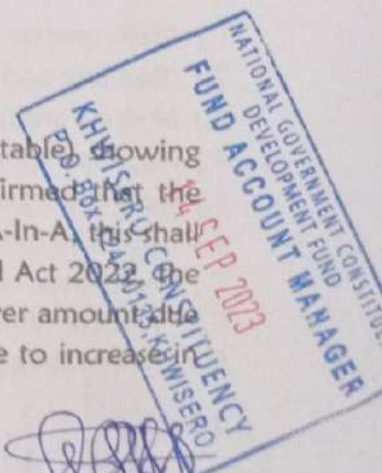 table) showing
irmed that the
A-In-A, this shall
Act 2022. The
er amount due
e to increase in
NATIONAL GOVERNMENT CONSTITUE
DEVELOPMENT FUND
FUND ACCOUNT MANAGER
14 SEP 2023
KHWISERO CONSTITUENCY
P.O. Box KHWISERO